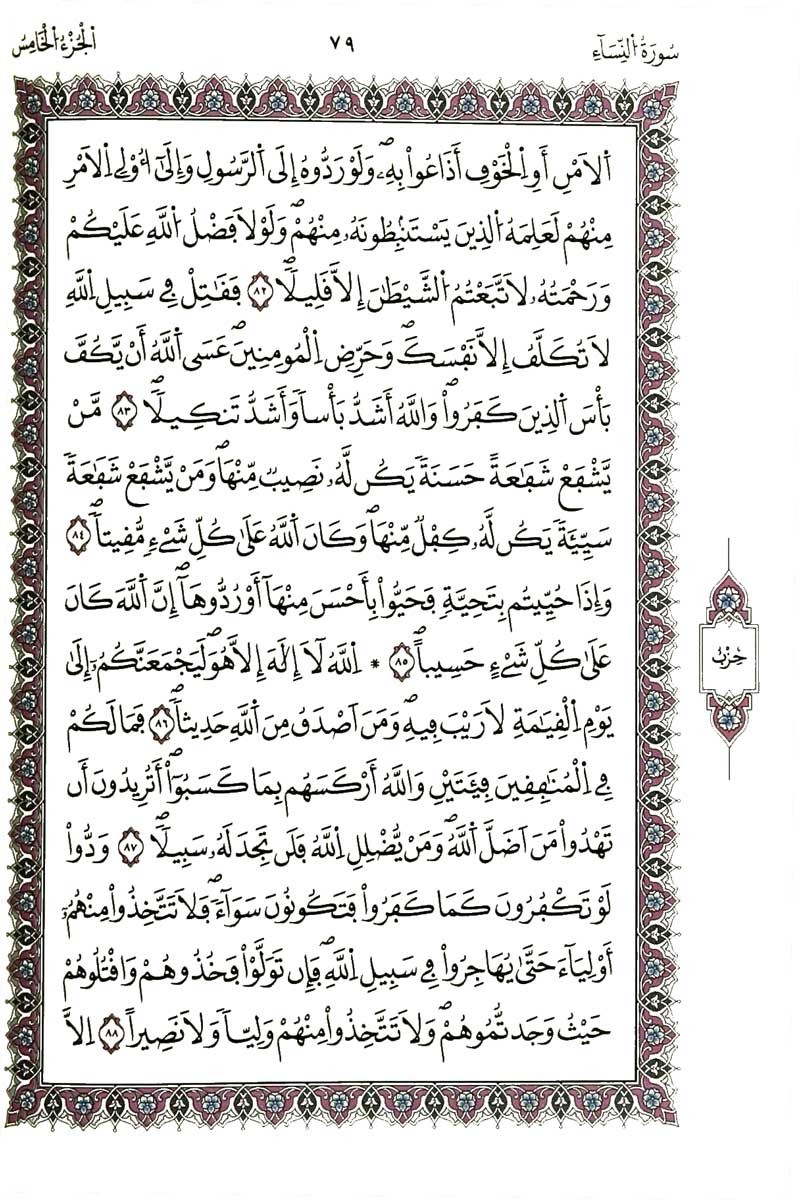 سُورَةُ النِّسَآءِ
٧٩
الْجُزْءُ الْخَامِسُ
اَلَامْنِ أَوِ اِلْخَوْفِ أَذَاعُواْ بِهِۦۖ وَلَوْ رَدُّوهُ إِلَى اَلرَّسُولِ وَإِلَىٰٓ أُوْلِے اِلَامْرِ
مِنْهُمْ لَعَلِمَهُ اُلذِينَ يَسْتَنۢبِطُونَهُۥ مِنْهُمْۖ وَلَوْلَا فَضْلُ اُللَّهِ عَلَيْكُمْ
وَرَحْمَتُهُۥ لَاتَّبَعْتُمُ اُلشَّيْطَٰنَ إِلَّا قَلِيلاۖ ٨٢ فَقَٰتِلْ فِے سَبِيلِ اِللَّهِ
لَا تُكَلَّفُ إِلَّا نَفْسَكَۖ وَحَرِّضِ اِلْمُومِنِينَۖ عَسَى اَللَّهُ أَنْ يَّكُفَّ
بَأْسَ اَلذِينَ كَفَرُواْۖ وَاللَّهُ أَشَدُّ بَأْساٗ وَأَشَدُّ تَنكِيلاۖ ٨٣ مَّنْ
يَّشْفَعْ شَفَٰعَةً حَسَنَةٗ يَكُن لَّهُۥ نَصِيبٞ مِّنْهَاۖ وَمَنْ يَّشْفَعْ شَفَٰعَةٗ
سَيِّئَةٗ يَكُن لَّهُۥ كِفْلٞ مِّنْهَاۖ وَكَانَ اَللَّهُ عَلَىٰ كُلِّ شَےْءٖ مُّقِيتاۖ ٨٤
وَإِذَا حُيِّيتُم بِتَحِيَّةٖ فَحَيُّواْ بِأَحْسَنَ مِنْهَآ أَوْ رُدُّوهَآۖ إِنَّ اَللَّهَ كَانَ
عَلَىٰ كُلِّ شَےْءٍ حَسِيباًۖ ٨٥ * اِللَّهُ لَآ إِلَٰهَ إِلَّا هُوَۖ لَيَجْمَعَنَّكُمُۥٓ إِلَىٰ
يَوْمِ اِلْقِيَٰمَةِ لَا رَيْبَ فِيهِۖ وَمَنَ اَصْدَقُ مِنَ اَللَّهِ حَدِيثاٗۖ ٨٦ فَمَا لَكُمْ
فِے اِلْمُنَٰفِقِينَ فِئَتَيْنِ وَاللَّهُ أَرْكَسَهُم بِمَا كَسَبُوٓاْۖ أَتُرِيدُونَ أَن
تَهْدُواْ مَنَ اَضَلَّ اَللَّهُۖ وَمَنْ يُّضْلِلِ اِللَّهُ فَلَن تَجِدَ لَهُۥ سَبِيلاٗۖ ٨٧ وَدُّواْ
لَوْ تَكْفُرُونَ كَمَا كَفَرُواْ فَتَكُونُونَ سَوَآءٗۖ فَلَا تَتَّخِذُواْ مِنْهُمُۥٓ
أَوْلِيَآءَ حَتَّىٰ يُهَاجِرُواْ فِے سَبِيلِ اِللَّهِۖ فَإِن تَوَلَّوْاْ فَخُذُوهُمْ وَاقْتُلُوهُمْ
حَيْثُ وَجَدتُّمُوهُمْۖ وَلَا تَتَّخِذُواْ مِنْهُمْ وَلِيّاٗ وَلَا نَصِيراً ٨٨ اِلَّا
حِزْبُ